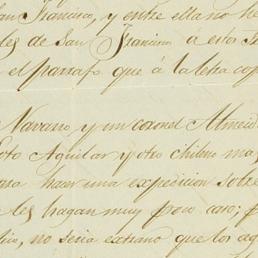 San Francisco, y entre ella no he
les de San Francisco á estos
el parrafo que á la letra cop
Navarro, y un coronel Almei
oto Aguilar y otro chileno ma
ara hacer una expedicion sobre
les hagan muy poco caso; p
, no seria extraño que los aq